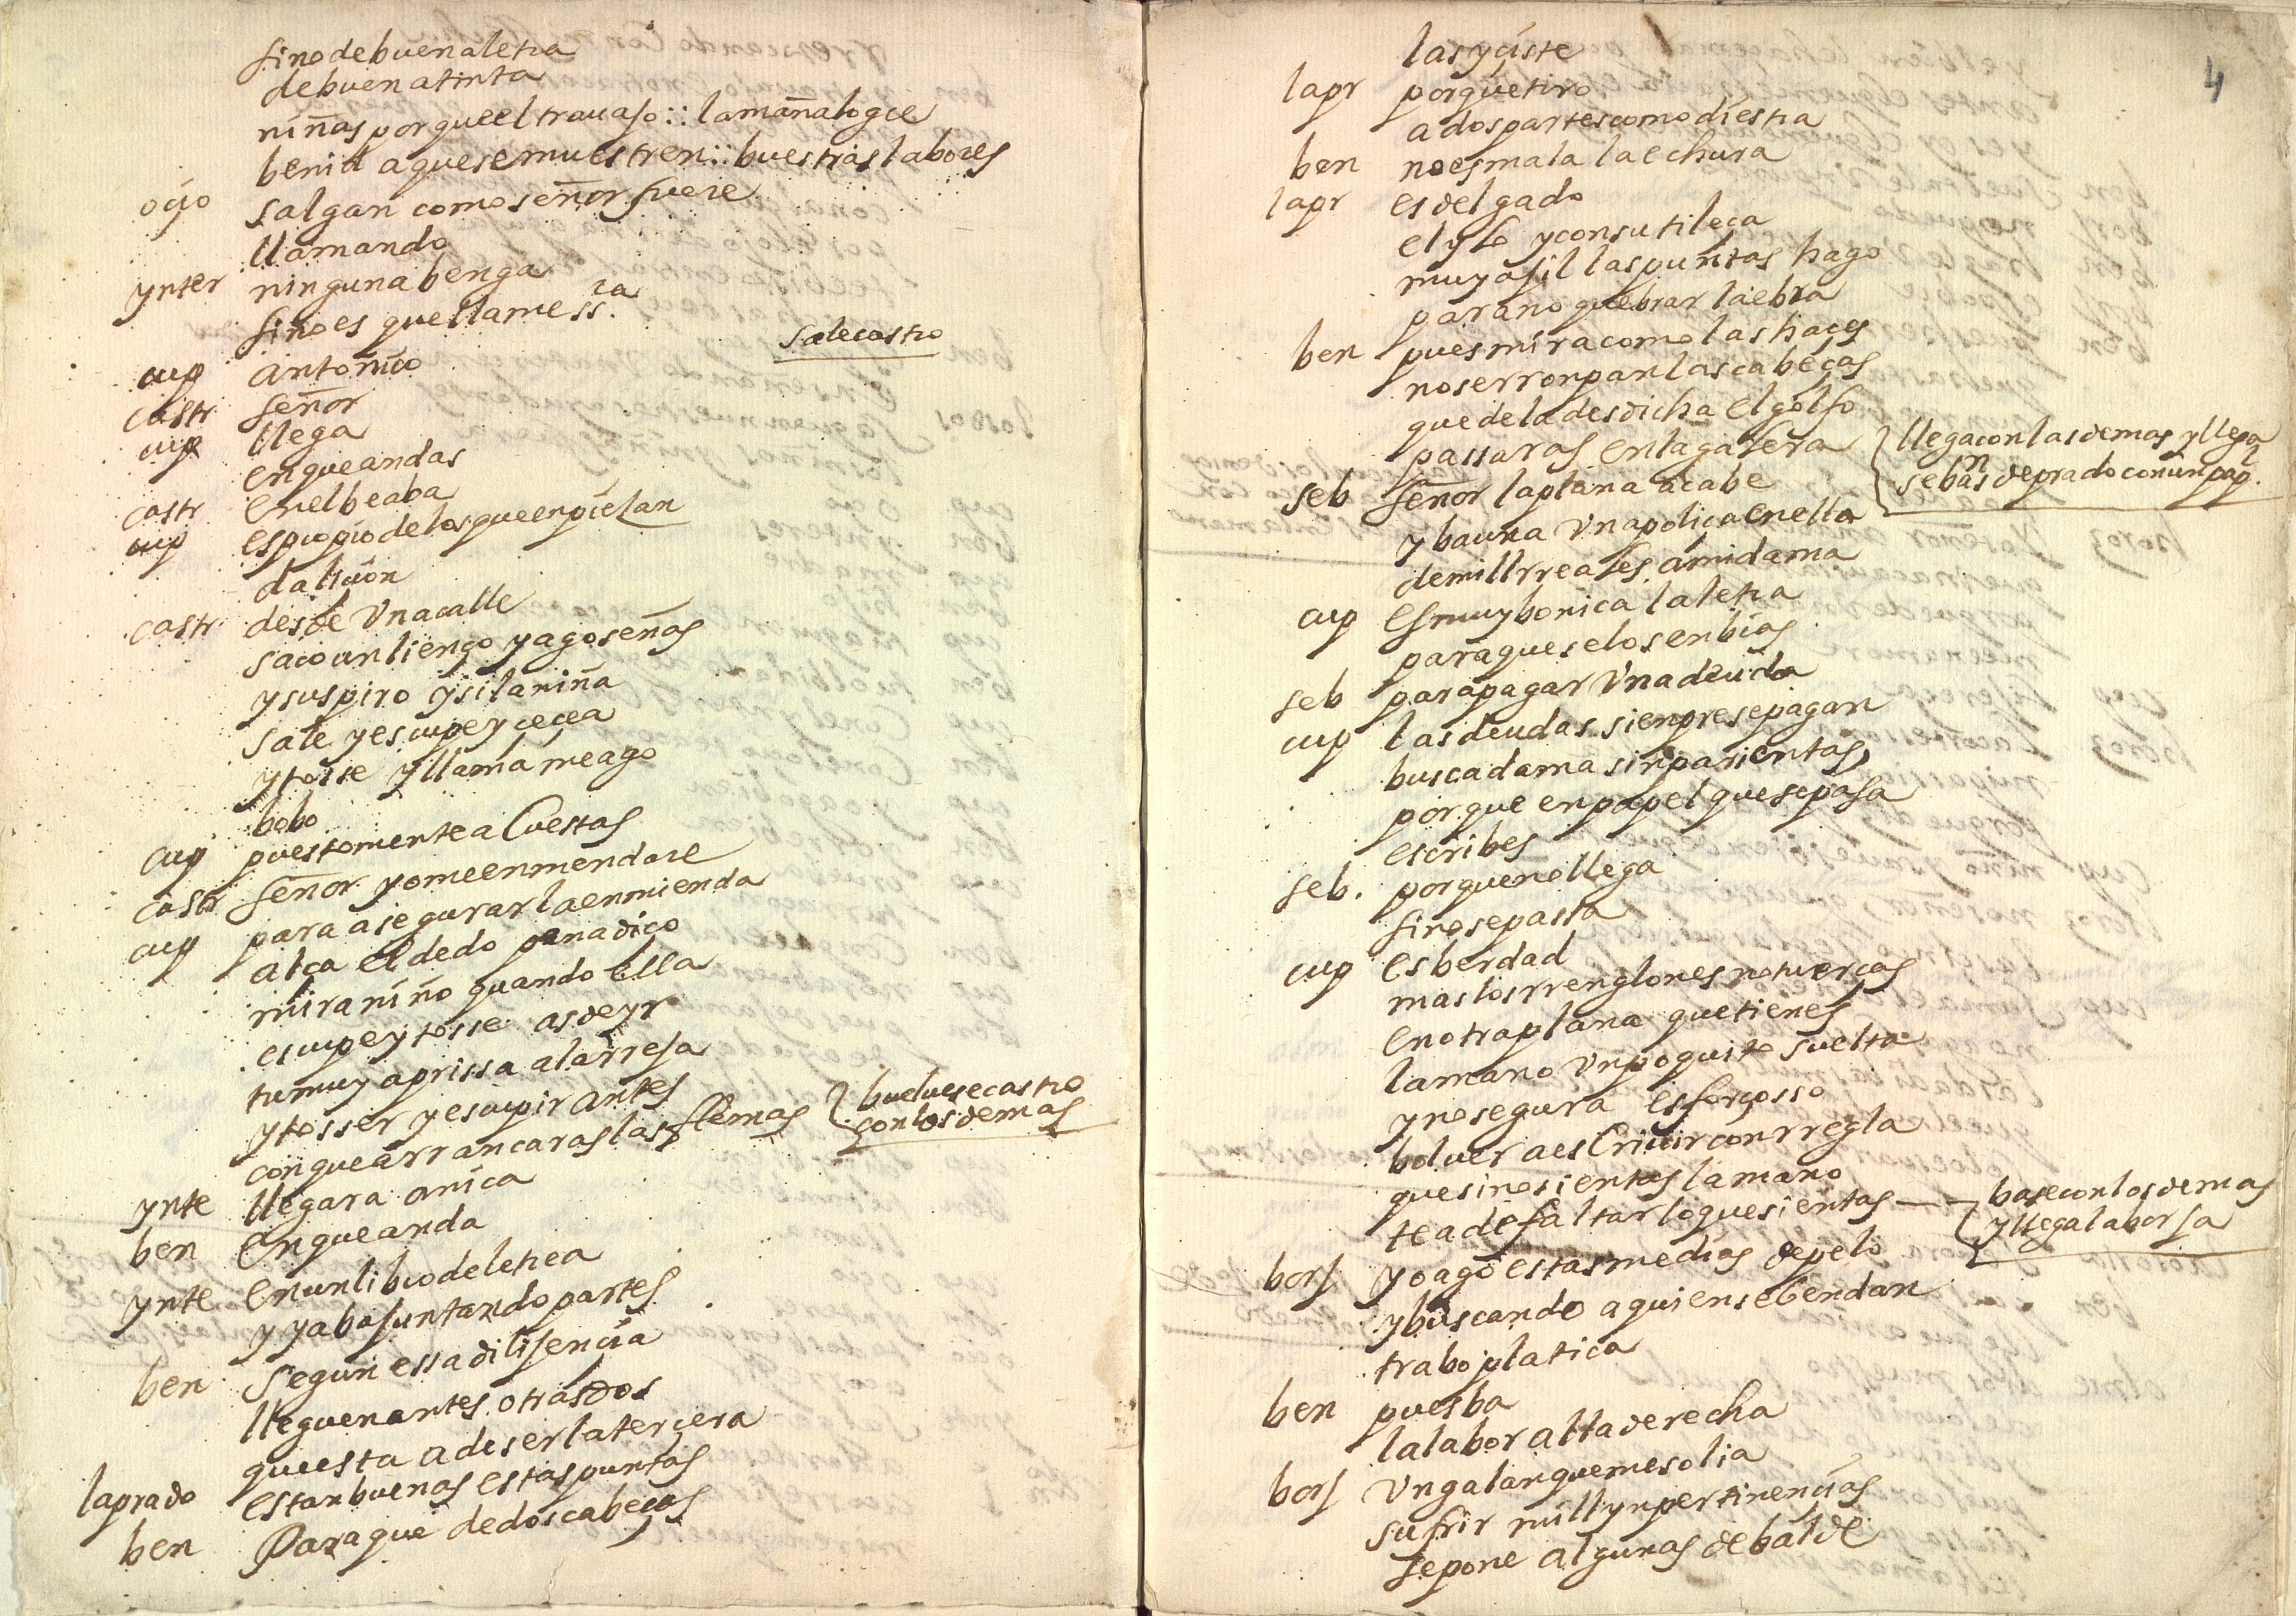 sino de buena letra
de buena tinta
niñas porque el trauajo :: la maña logre
benid a que se muestren :: buestras labores
ocio salgan como señor fuere
llamando
ynter ninguna benga
sino es que llame ss.ra
cup antonico
sale castro
castr señor
cup llega
en que andas
castr en el beaba
cup es propio de los que enpieçan
da liçion
castr desde vna calle
saco un lienço y ago señas
y suspiro y si la niña
sale y escupe y cecea
y tosse y llama me ago
bobo
cup puestomente a cuestas
castr señor yo me enmendare
cup para asegurar la enmienda
alça el dedo panadiço
mira niño quando ella
escupe y tosse as de yr
tu muy aprissa a la rreja
y tosser y escupir antes
con que arrancaras las flemas
buelvese castro
con los demas
ynte llegara anica
ben en que anda
ynte en un libro de letra
y ya ba juntando partes
ben segun essa dilijencia
lleguen antes otras dos
que esta a de ser la tercera
laprado estan buenas estas puntas
ben Para que de dos cabeças
4
las yçiste
lapr porque tiro
a dos partes como diestra
ben no es mala la echura
lapr es delgado
el ylo y con sutileça
muy ajil las puntas hago
para no quebrar la ebra
ben pues mira como las haçes
no se rronpan las cabeças
que de la desdicha el golfo
passaras en la galera
llega con las demas y llega
sebasn de prado con un pap.l
seb señor la plana acabe
y ba una vna poliça en ella
de mill rreales a mi dama
cup es muy bonica la letra
para que se los enbias
seb para pagar vna deuda
cup las deudas sienpre se pagan
busca dama sin parientas
porque en papel que se pasa
escribes
seb. porque no llega
si no se passa
cup es berdad
mas los rrenglones no tuerças
en otra plana que tienes
la mano vn poquito suelta
y no segura es forçosso
bolver a escriuir con rregla
que si no sientas la mano
te a de faltar lo que sientas
base con los demas
y llega la borja
borj yo ago estas medias de pelo
y buscando a quien se bendan
trabo platica
ben pues ba
la labor alta derecha
borj vn galan que me solia
sufrir mill ynpertinencias
se pone algunas de balde